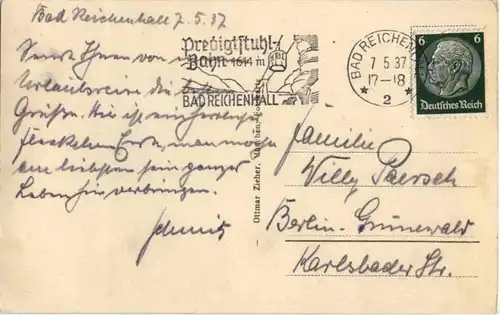 Bad Reichenhall 7.5.37
Predigtstuhl-
Bahn 1614 m
BAD REICHENHALL
BAD REICHENHALL
7 5 37
17-18
2
6 6
Deutsches Reich
Sende Ihnen von
Urlaubsreise die besten
Grüße. Hier ist ein herrliches
Fleckchen Erde, man möchte
am liebsten sein ganzes
Leben hier verbringen.
Schmitz
Ottmar Zieher, München
Familie
Willy Paersch
Berlin-Grunewald
Karlsbader Str.